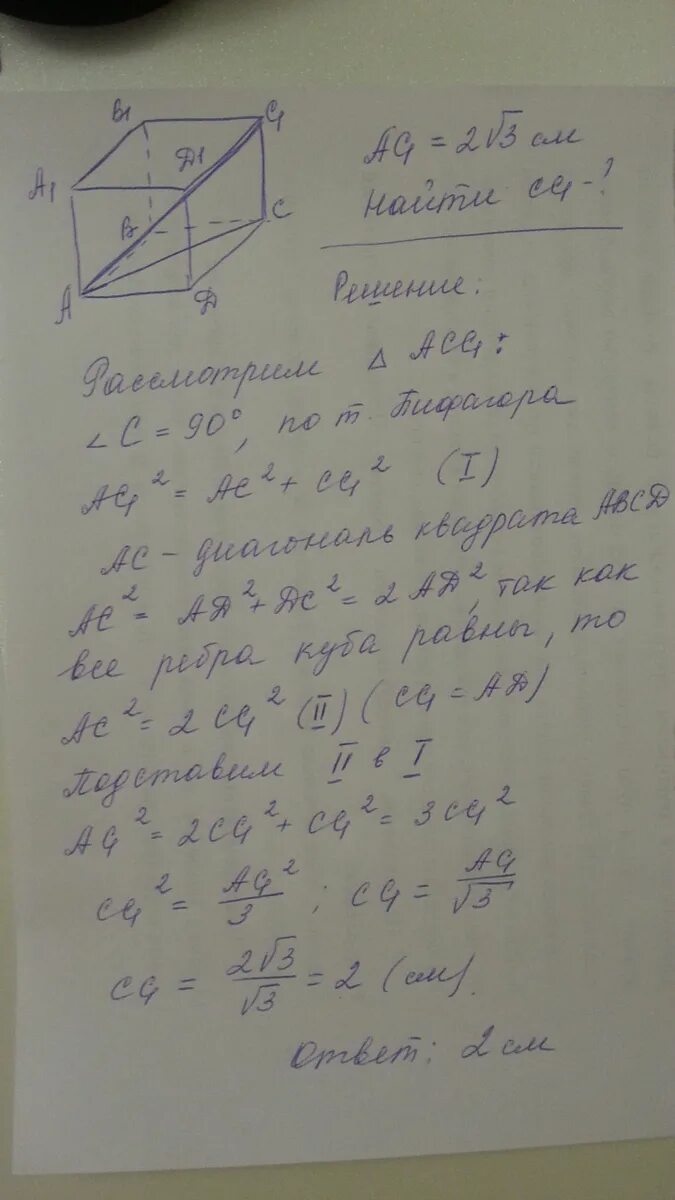 B1 C1
A1 Д1
B C
A Д
AC1 = 2√3 см
Найти CC1 - ?
Решение:
Рассмотрим △ ACC1:
∠C = 90°, по т. Пифагора
AC1² = AC² + CC1² (I)
AC - диагональ квадрата ABCД
AC² = AД² + ДC² = 2AД², так как
все ребра куба равны, то
AC² = 2CC1² (II) (CC1 = AД)
Подставим II в I
AC1² = 2CC1² + CC1² = 3CC1²
CC1² = AC1²/3 ; CC1 = AC1/√3
CC1 = 2√3/√3 = 2 (см).
Ответ: 2 см